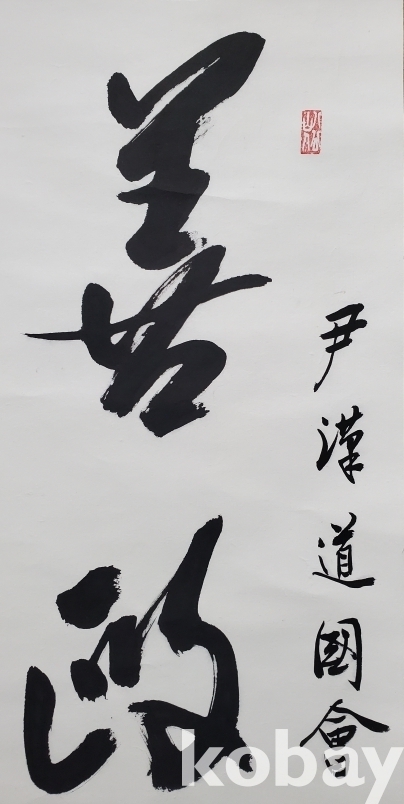 尹漢道國會
善政
kobay